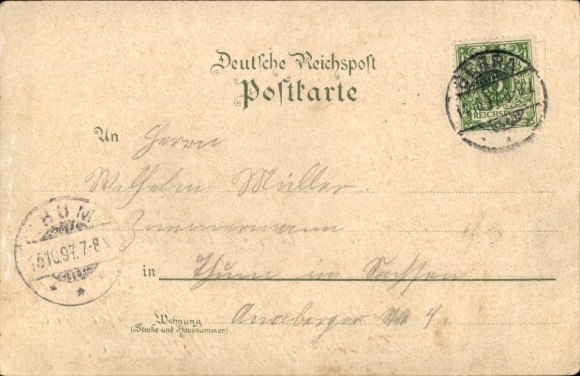 Deutsche Reichspost
Postkarte
BEBRA
REICHSPOST
An Herrn
Wilhelm Müller
Zimmermann
THUM
15 10.97. 7-8
in Thum in Sachsen
Wohnung
(Straße und Hausnummer)
Annaberger 4.